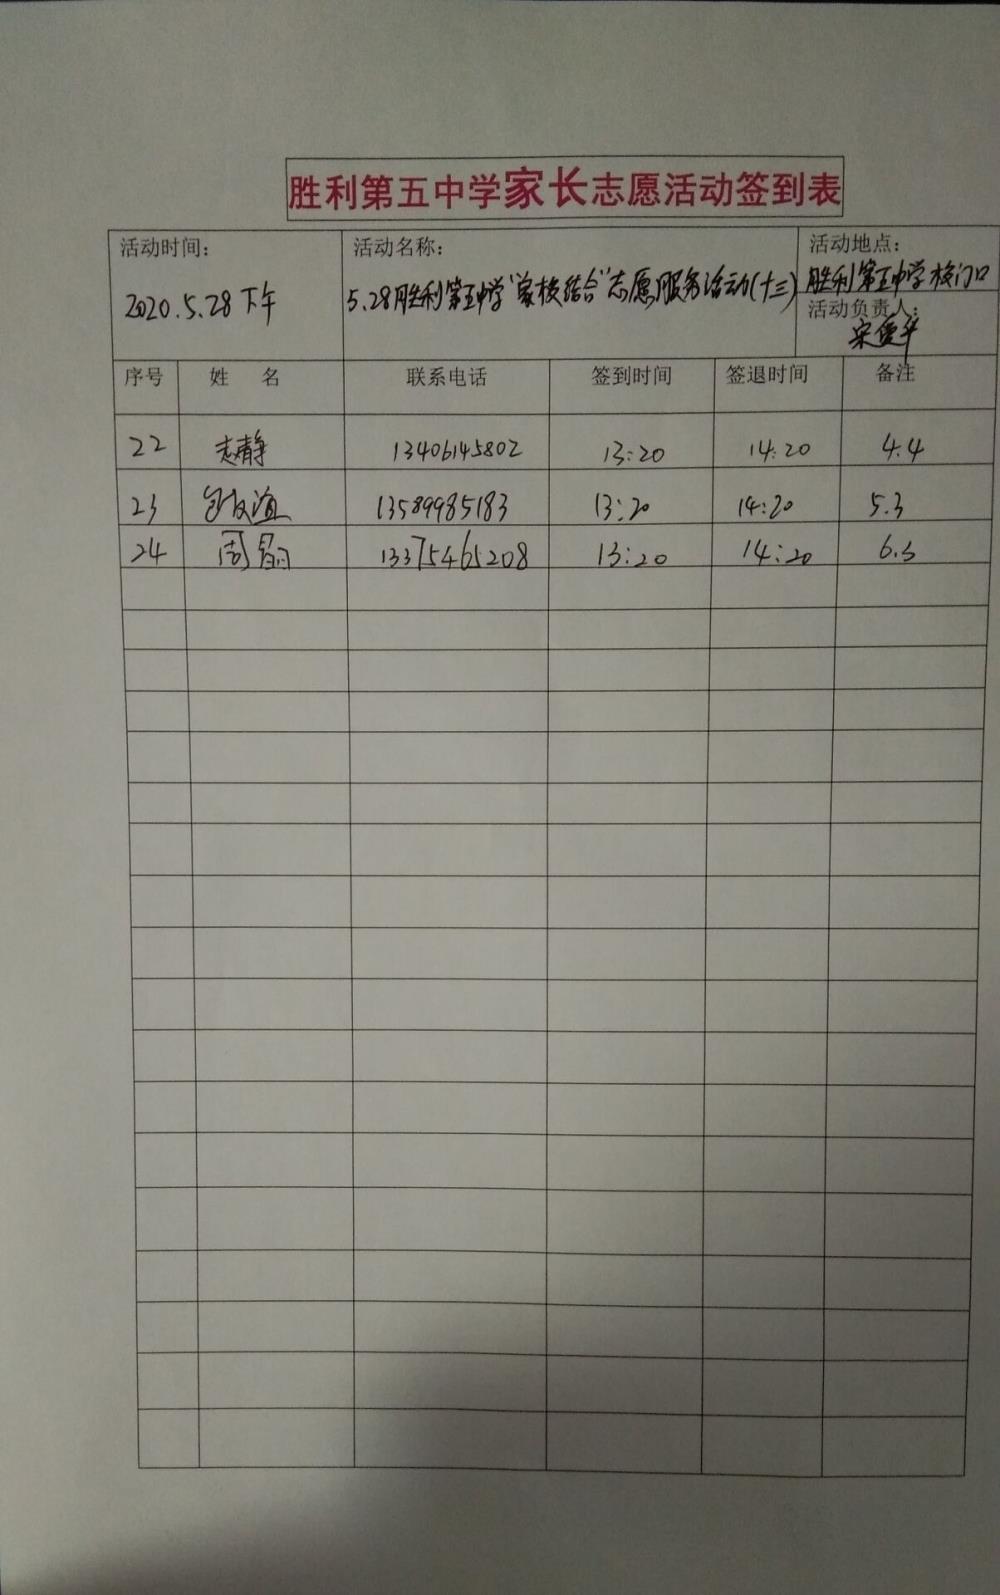 胜利第五中学家长志愿活动签到表
活动时间： 活动名称： 活动地点：
2020.5.28下午 5.28胜利第五中学"家校结合"志愿服务活动(十三) 胜利第五中学校门口
活动负责人：
序号 姓 名 联系电话 签到时间 签退时间 备注
22 13406145802 13:20 14:20 4.4
23 13589985183 13:20 14:20 5.3
24 周 13375465208 13:20 14:20 6.3